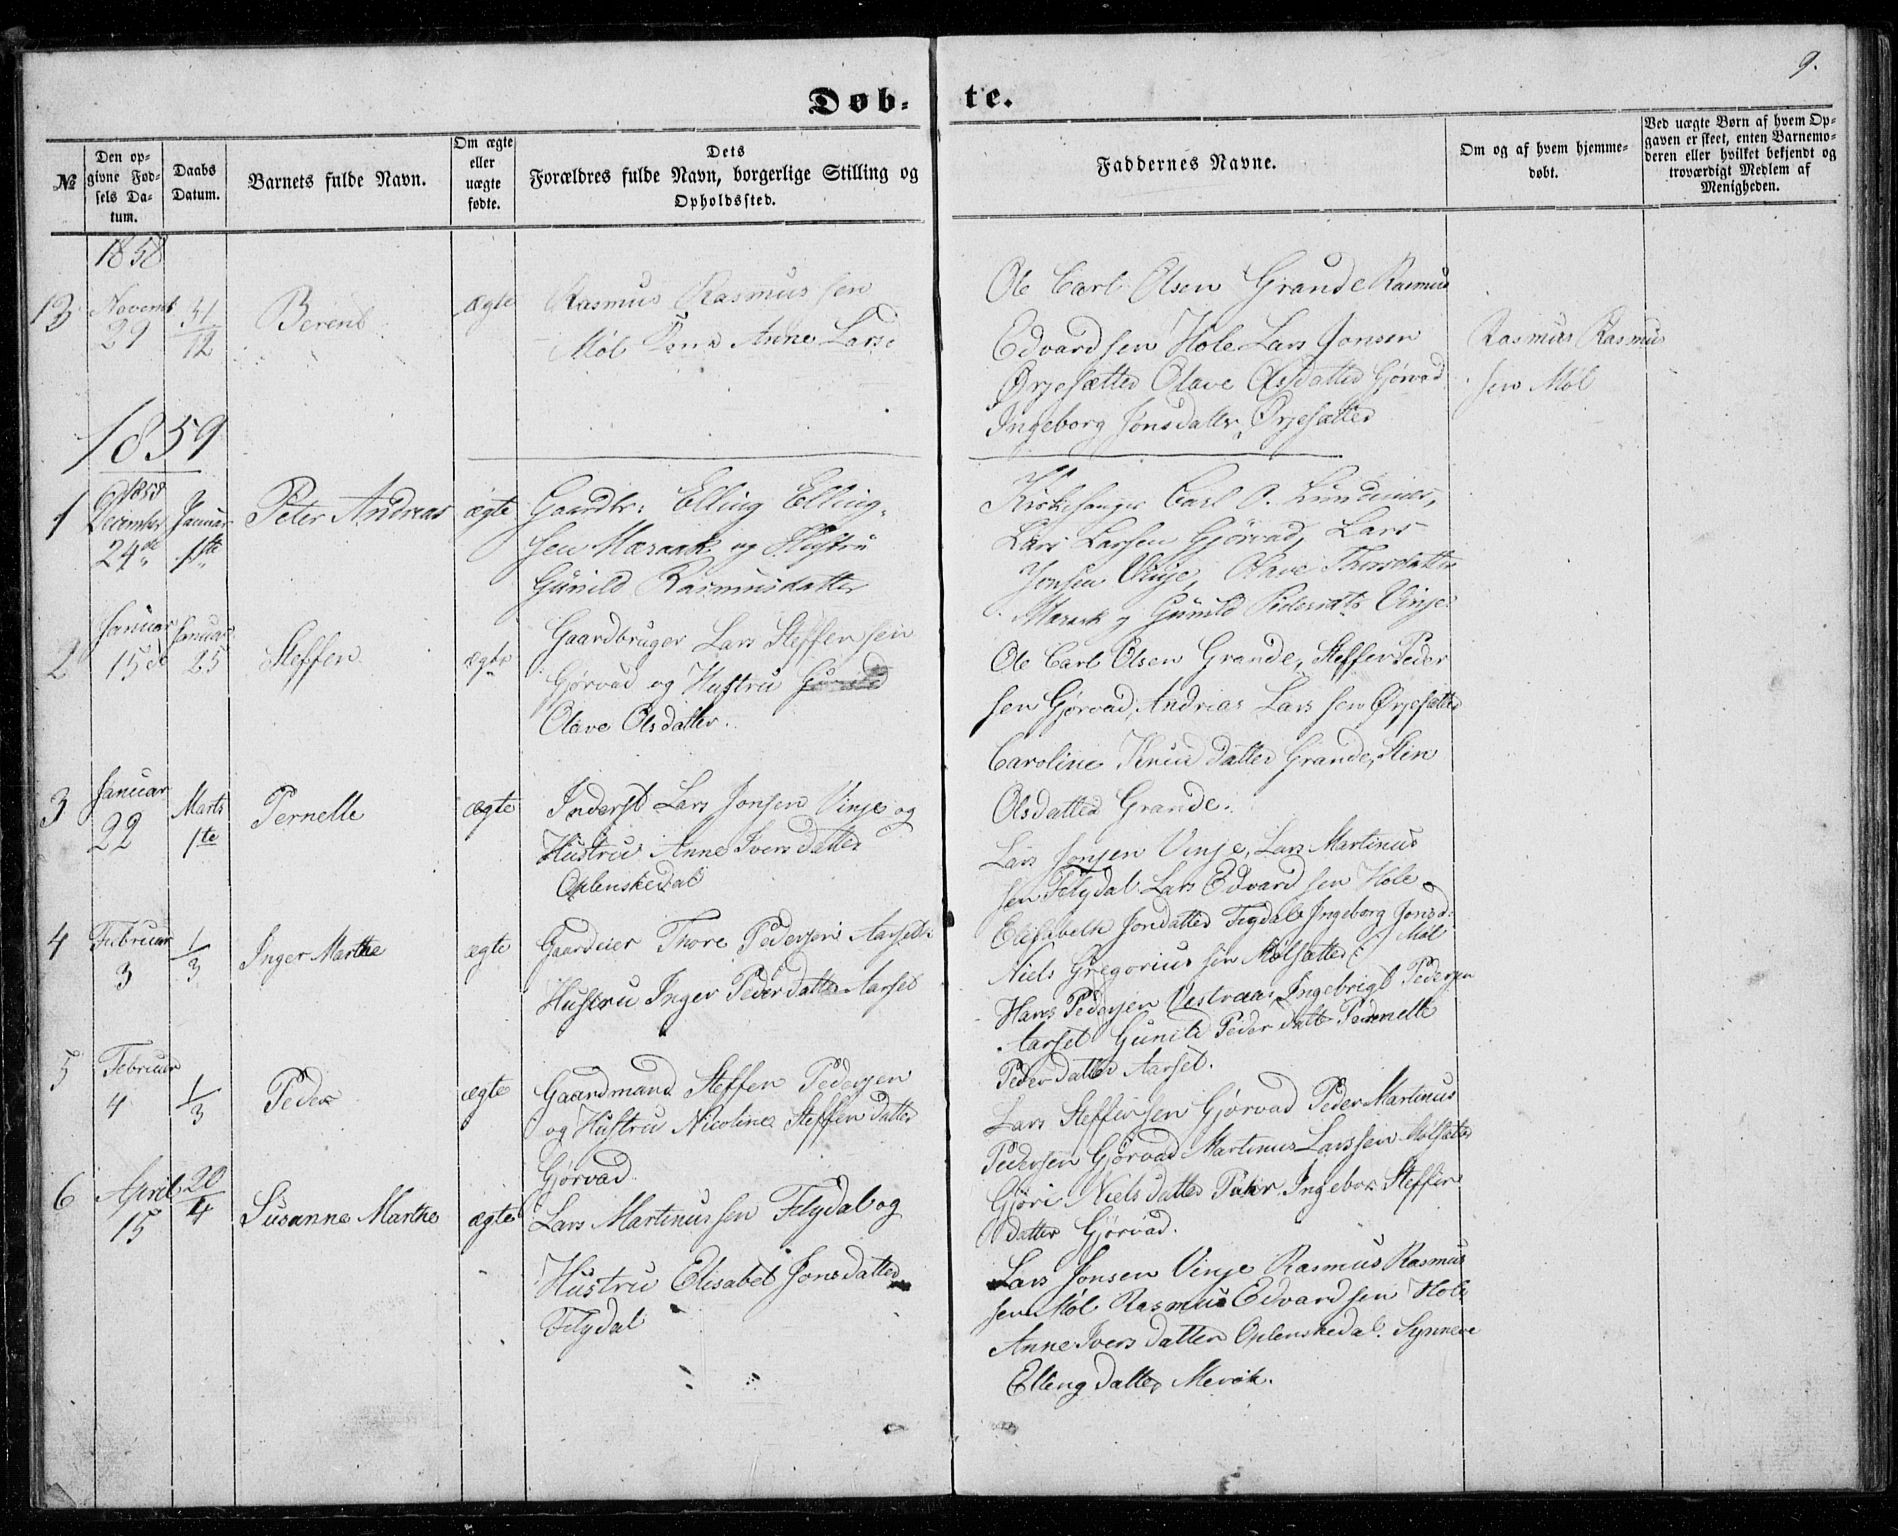 9.
Døb- te.
№
Den opgivne Fødsels Datum.
Daabs Datum.
Barnets fulde Navn.
Om ægte eller uægte fødte.
Dets Forældres fulde Navn, borgerlige Stilling og Opholdssted.
Faddernes Navne.
Om og af hvem hjemmedøbt.
Ved uægte Børn af hvem Opgaven er skeet, enten Barnemoderen eller hvilket bekjendt og troværdigt Medlem af Menigheden.
1858
13 Novemb 29 31/12 Berent ægte
Rasmus Rasmussen
Møl Anne Larsd
Ole Carl Olsen Grande Rasmus
Edvardsen Hole Lars Jonsen
Ørjesætter Olave Olsdatter Gjørvad
Ingeborg Jonsdatter Ørjesætter
Rasmus Rasmus
sen Møl
1859
1 1858 December 24de Januar 1ste Peter Andreas ægte
Gaardbr: Elling Elling-
sen Maraak og Hustru
Gunild Rasmusdatter
Kirkesanger Carl O. Lundinus,
Lars Larsen Gjørvad, Lars
Jonsen Vinje, Olave Thorsdatter
Maraak og Gunild Pedersdtr Vinje
2 Januar 15de Januar 25 Steffen ægte
Gaardbruger Lars Steffensen
Gjørvad og Hustru
Olave Olsdatter.
Ole Carl Olsen Grande, Steffen Peder
sen Gjørvad, Andreas Larssen Ørjesætter
Caroline Knudsdatter Grande, Stin
Olsdatter Grande.
3 Januar 22 Marts 1ste Pernelle ægte
Inderst Lars Jonsen Vinje og
Hustru Anne Iversdatter
Oplenskedal
Lars Jonsen Vinje, Lars Martinus
sen Flydal Lars Edvardsen Hole
Elisabeth Jondatter Flydal Ingeborg Jonsd:
Møl
4 Februar 3 1/3 Inger Marthe ægte
Gaardeier Thore Pedersen Aarset
Hustru Inger Pedersdatter Aarset
Niels Gregoriussen Mølsætter
Hans Pedersen Vestraas, Ingebrigt Pedersen
Aarset Gunild Pederdatt Pernelle
Pedersdatter Aarset.
5 Februar 4 1/3 Peder ægte
Gaardmand Steffen Pedersen
og Hustru Nicoline Steffensdatter
Gjørvad
Lars Steffensen Gjørvad Peder Martinus
Pedersen Gjørvad Martinus Larssen Mølsætter
Gjøri Nielsdatter Ingebor Steffens
datter Gjørvad.
6 April 15 20/4 Susanne Marthe ægte
Lars Martinussen Flydal og
Hustru Elisabet Jonsdatter
Flydal
Lars Jonsen Vinje Rasmus Rasmus
sen Møl Rasmus Edvardsen Hole
Anne Iversdatter Oplenskedal. Synneve
Ellingdatter Merok.